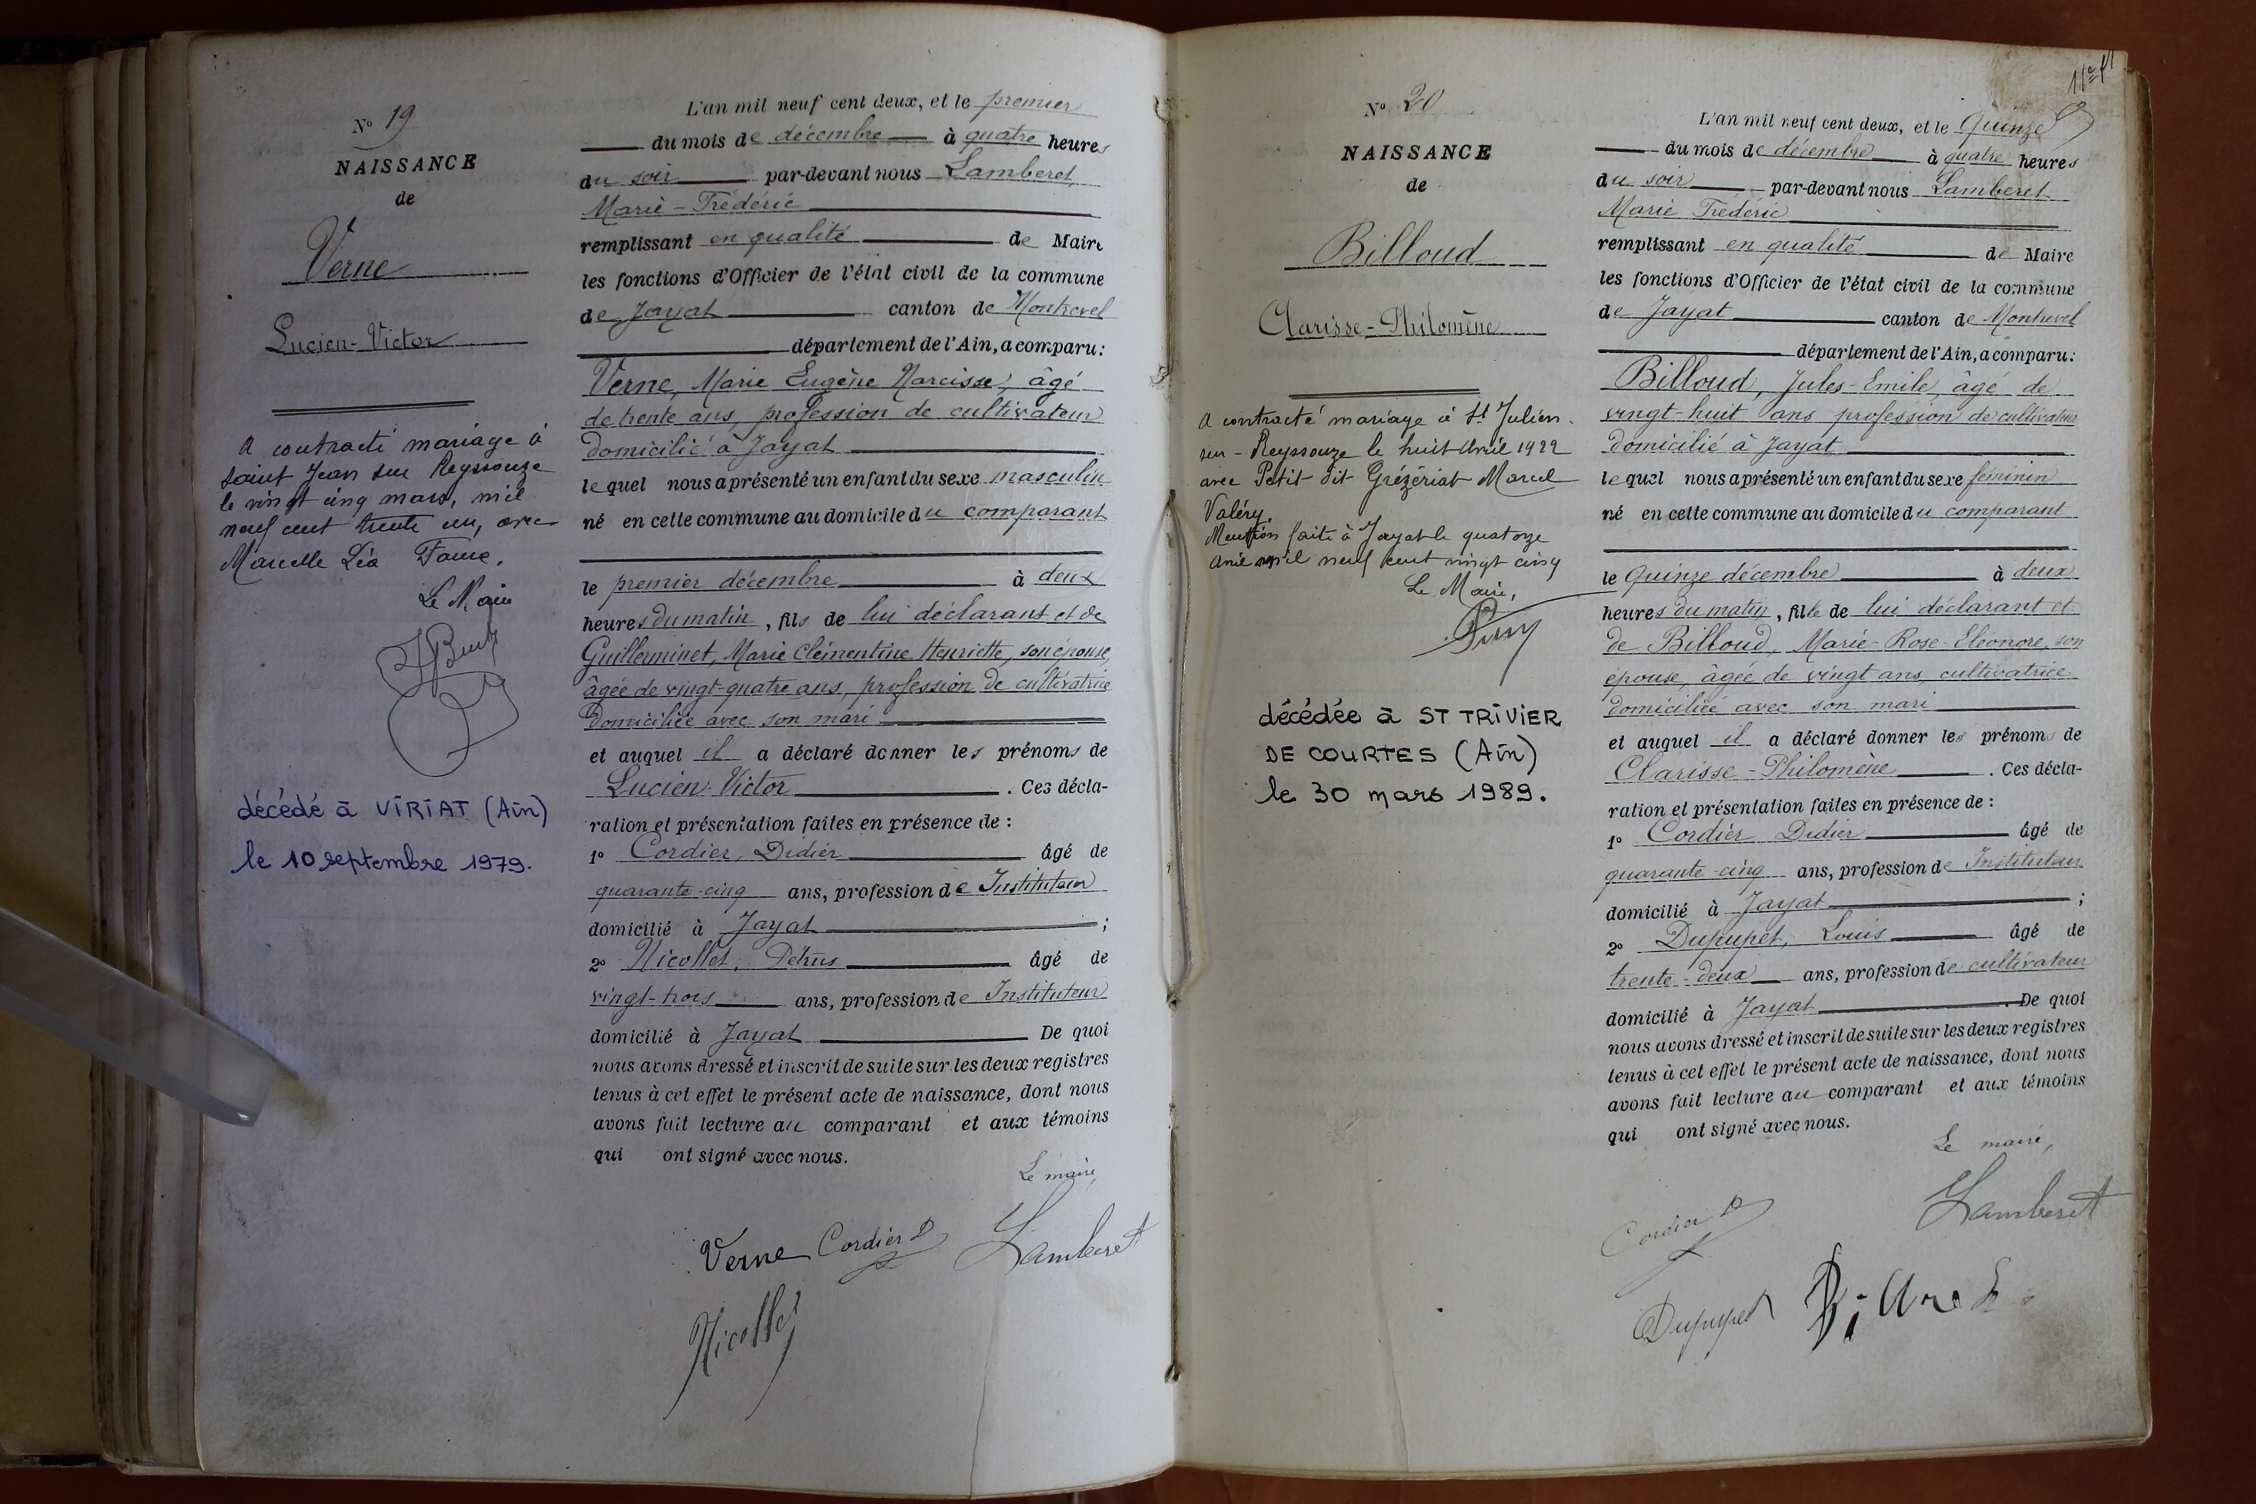 Nº 19
NAISSANCE
de
Verne
Lucien-Victor
A contracté mariage à
Saint Jean sur Reyssouze
le vingt cinq mars, mil
neuf cent trente un, avec
Marcelle Léa Faure.
Le Maire
décédé à VIRIAT (Ain)
le 10 septembre 1979.
L'an mil neuf cent deux, et le premier
du mois de décembre à quatre heures
du soir par-devant nous Lamberet,
Marie-Frédéric
remplissant en qualité de Maire
les fonctions d'Officier de l'état civil de la commune
de Jayat canton de Montrevel
département de l'Ain, a comparu:
Verne, Marie Eugène Narcisse, âgé
de trente ans, profession de cultivateur
domicilié à Jayat
lequel nous a présenté un enfant du sexe masculin
né en cette commune au domicile du comparant
le premier décembre à deux
heures du matin, fils de lui déclarant et de
Guillerminet, Marie Clémentine Henriette, son épouse,
âgée de vingt-quatre ans, profession de cultivatrice
domiciliée avec son mari
et auquel il a déclaré donner les prénoms de
Lucien-Victor. Ces décla-
ration et présentation faites en présence de:
1º Cordier, Didier âgé de
quarante-cinq ans, profession de Instituteur
domicilié à Jayat;
2º Nicollet, Pétrus âgé de
vingt-trois ans, profession de Instituteur
domicilié à Jayat De quoi
nous avons dressé et inscrit de suite sur les deux registres
tenus à cet effet le présent acte de naissance, dont nous
avons fait lecture au comparant et aux témoins
qui ont signé avec nous.
Le maire,
Verne Cordier D Lamberet
Nicollet
11e f
Nº 20
NAISSANCE
de
Billoud
Clarisse-Philomène
A contracté mariage à St Julien-
sur-Reyssouze le huit Avril 1922
avec Petit dit Grézériat Marcel
Valéry.
Mention faite à Jayat le quatorze
Avril mil neuf cent vingt cinq
Le Maire,
décédée à ST TRIVIER
DE COURTES (Ain)
le 30 mars 1989.
L'an mil neuf cent deux, et le Quinze
du mois de décembre à quatre heures
du soir par-devant nous Lamberet
Marie Frédéric
remplissant en qualité de Maire
les fonctions d'Officier de l'état civil de la commune
de Jayat canton de Montrevel
département de l'Ain, a comparu:
Billoud, Jules-Emile, âgé de
vingt-huit ans profession de cultivateur
domicilié à Jayat
lequel nous a présenté un enfant du sexe féminin
né en cette commune au domicile du comparant
le Quinze décembre à deux
heures du matin, fille de lui déclarant et
de Billoud, Marie-Rose-Eléonore, son
épouse, âgée de vingt ans, cultivatrice
domiciliée avec son mari
et auquel il a déclaré donner les prénoms de
Clarisse-Philomène. Ces décla-
ration et présentation faites en présence de:
1º Cordier, Didier âgé de
quarante-cinq ans, profession de Instituteur
domicilié à Jayat;
2º Dupupet, Louis âgé de
trente-deux ans, profession de cultivateur
domicilié à Jayat. De quoi
nous avons dressé et inscrit de suite sur les deux registres
tenus à cet effet le présent acte de naissance, dont nous
avons fait lecture au comparant et aux témoins
qui ont signé avec nous.
Le maire,
Cordier D Lamberet
Dupupet